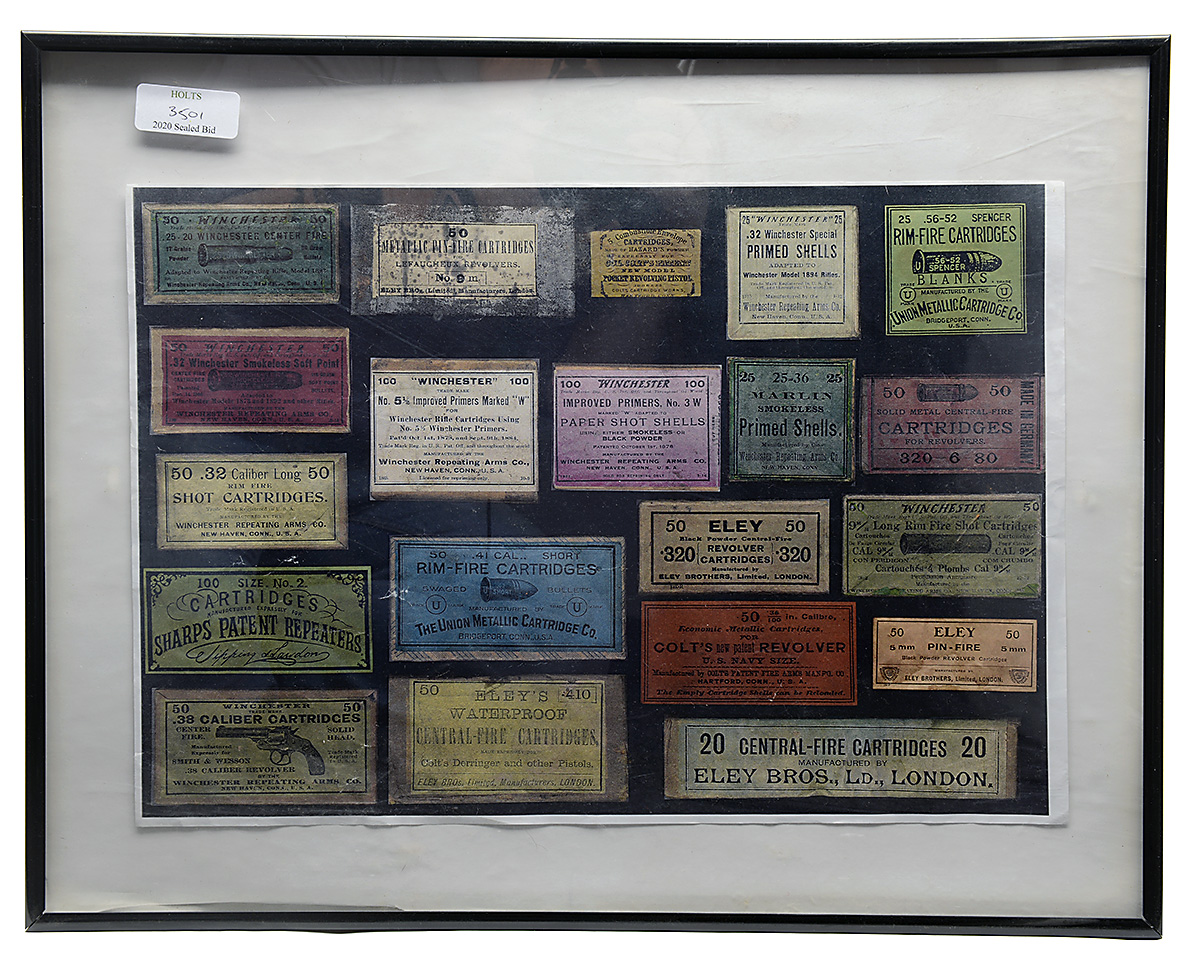 HOLTS
3501
2020 Sealed Bid
50 WINCHESTER 50
25-20 WINCHESTER CENTER FIRE
Powder
Adapted to Winchester Repeating Rifle, Model
50
METALLIC PIN-FIRE CARTRIDGES
LEFAUCHEUX REVOLVERS.
No. 9 m
ELEY BROS. (Limited), Manufacturers, London
5 Combustible Envelope
CARTRIDGES,
HAZARD'S POWDER
NEW MODEL
POCKET REVOLVING PISTOL
COLTS CARTRIDGE WORKS
25 "WINCHESTER" 25
.32 Winchester Special
PRIMED SHELLS
ADAPTED TO
Winchester Model 1894 Rifles.
Manufactured by the
Winchester Repeating Arms Co.
New Haven, Conn., U.S.A.
25 .56-52 SPENCER
RIM-FIRE CARTRIDGES
U .56-52 SPENCER
BLANKS
U MANUFACTURED BY THE U
UNION METALLIC CARTRIDGE CO
BRIDGEPORT, CONN.
U.S.A.
50 WINCHESTER 50
.32 Winchester Smokeless Soft Point
WINCHESTER REPEATING ARMS CO.
NEW HAVEN, CONN., U.S.A.
100 "WINCHESTER" 100
TRADE MARK
No. 5½ Improved Primers Marked "W"
FOR
Winchester Rifle Cartridges Using
No. 5½ Winchester Primers.
Pat'd Oct 1st, 1878, and Sept. 9th, 1884.
MANUFACTURED BY THE
Winchester Repeating Arms Co.,
NEW HAVEN, CONN., U.S.A.
100 WINCHESTER 100
IMPROVED PRIMERS, No. 3 W
MARKED "W" ADAPTED TO
PAPER SHOT SHELLS
USING EITHER SMOKELESS OR
BLACK POWDER
PATENTED OCTOBER 1ST 1878
MANUFACTURED BY THE
WINCHESTER REPEATING ARMS CO.,
NEW HAVEN, CONN. U.S.A.
25 25-36 25
MARLIN
SMOKELESS
Primed Shells.
Manufactured by the
Winchester Repeating Arms Co.
NEW HAVEN, CONN
50 50
SOLID METAL CENTRAL-FIRE
CARTRIDGES
FOR REVOLVERS.
320 - 6 80
MADE IN GERMANY
50 .32 Caliber Long 50
RIM FIRE
SHOT CARTRIDGES.
MANUFACTURED BY THE
WINCHESTER REPEATING ARMS CO.
NEW HAVEN, CONN., U.S.A.
50 .41 CAL. SHORT
RIM-FIRE CARTRIDGES
SWAGED BULLETS
U MANUFACTURED BY U
THE UNION METALLIC CARTRIDGE CO.
BRIDGEPORT, CONN., U.S.A
50 ELEY 50
Black Powder Central-Fire
·320 REVOLVER CARTRIDGES ·320
Manufactured by
ELEY BROTHERS, Limited, LONDON.
50 WINCHESTER 50
Long Rim Fire Shot Cartridges
Cartouches
CAL 9 CAL 9
CON PERDIGON COM CHUMBO
Cartouches à Plombs Cal 9
100 SIZE, No. 2.
CARTRIDGES
MANUFACTURED EXPRESSLY FOR
SHARPS PATENT REPEATERS
Tipping & Lawdon
50 38/100 in. Calibre,
Economic Metallic Cartridges.
FOR
COLT'S new patent REVOLVER
U.S. NAVY SIZE.
Manufactured by COLTS PATENT FIRE ARMS MAN'FG. CO
HARTFORD, CONN., U.S.A.
The Empty Cartridge Shells can be Reloaded.
50 ELEY 50
5 mm PIN-FIRE 5 mm
Black Powder REVOLVER Cartridges
MANUFACTURED BY
ELEY BROTHERS, Limited, LONDON.
50 WINCHESTER 50
.38 CALIBER CARTRIDGES
CENTER FIRE. SOLID HEAD.
Manufactured
Expressly for
SMITH & WESSON
.38 CALIBER REVOLVER
BY THE
WINCHESTER REPEATING ARMS CO.
NEW HAVEN, CONN., U.S.A.
50 ELEY'S ·410
WATERPROOF
CENTRAL-FIRE CARTRIDGES,
Colt's Derringer and other Pistols,
ELEY BROS. Limited, Manufacturers, LONDON
20 CENTRAL-FIRE CARTRIDGES 20
MANUFACTURED BY
ELEY BROS., LD., LONDON.